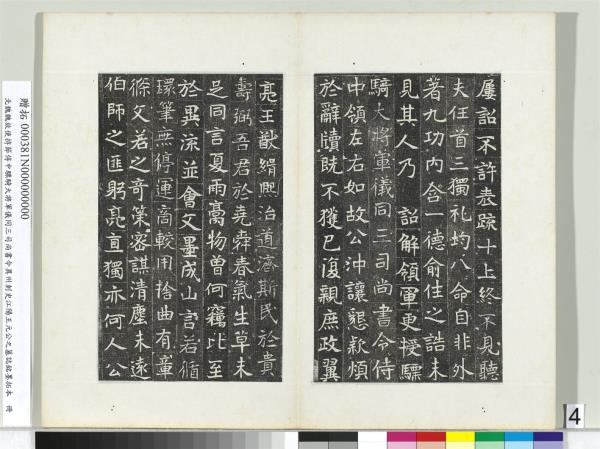 屢詔不許表疏十上終不見聽
夫任首三獨礼均八命自非外
著九功內含一德俞往之誥未
見其人乃 詔解領軍更授驃
騎大將軍儀同三司尚書令侍
中領左右如故公沖讓懇款煩
於辭牘既不獲已復親庶政翼
亮王猷緝熙治道濟斯民於貴
壽弼吾君於堯舜春氣生草未
足同言夏雨膏物曾何竊比至
於異流並會文墨成山言若循
環筆無停運高較用捨曲有章
條文若之奇策密謀清塵未遠
伯師之匪躬亮直獨亦何人公
贈拓 000381N000000000
北魏魏故使持節侍中驃騎大將軍儀同三司尚書令冀州刺史江陽王元公之墓誌銘墨拓本 冊
4